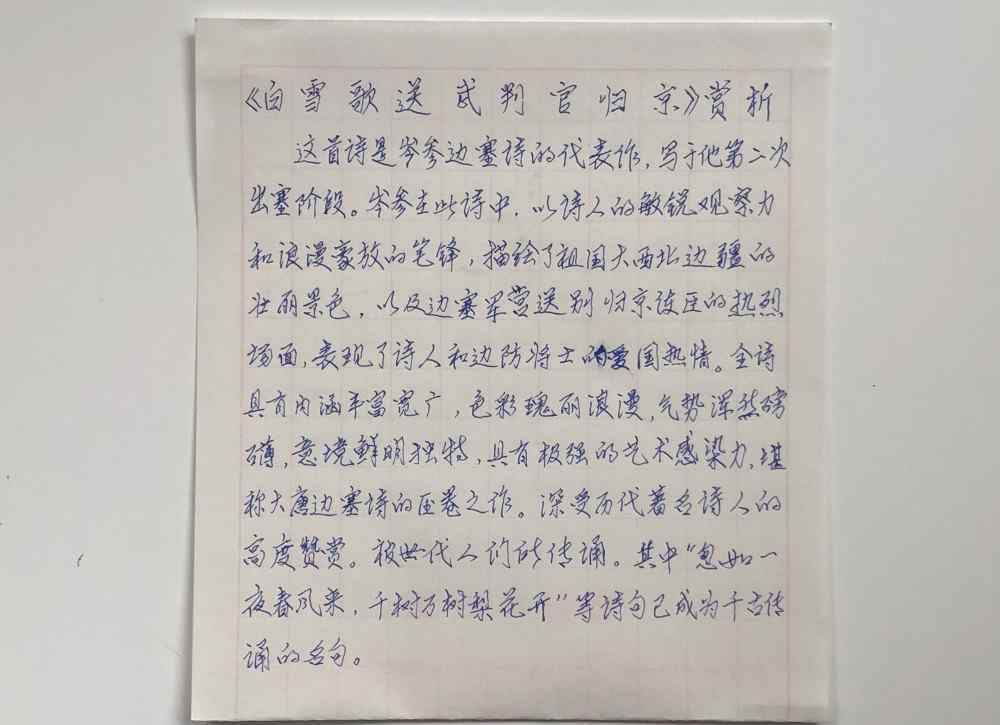 《白雪歌送武判官归京》赏析
这首诗是岑参边塞诗的代表作，写于他第二次
出塞阶段。岑参在此诗中，以诗人的敏锐观察力
和浪漫豪放的笔锋，描绘了祖国大西北边疆的
壮丽景色，以及边塞军营送别归京使臣的热烈
场面，表现了诗人和边防将士的爱国热情。全诗
具有内涵丰富宽广，色彩瑰丽浪漫，气势浑然磅
礴，意境鲜明独特，具有极强的艺术感染力，堪
称大唐边塞诗的压卷之作。深受历代著名诗人的
高度赞赏。被世代人们所传诵。其中“忽如一
夜春风来，千树万树梨花开”等诗句已成为千古传
诵的名句。